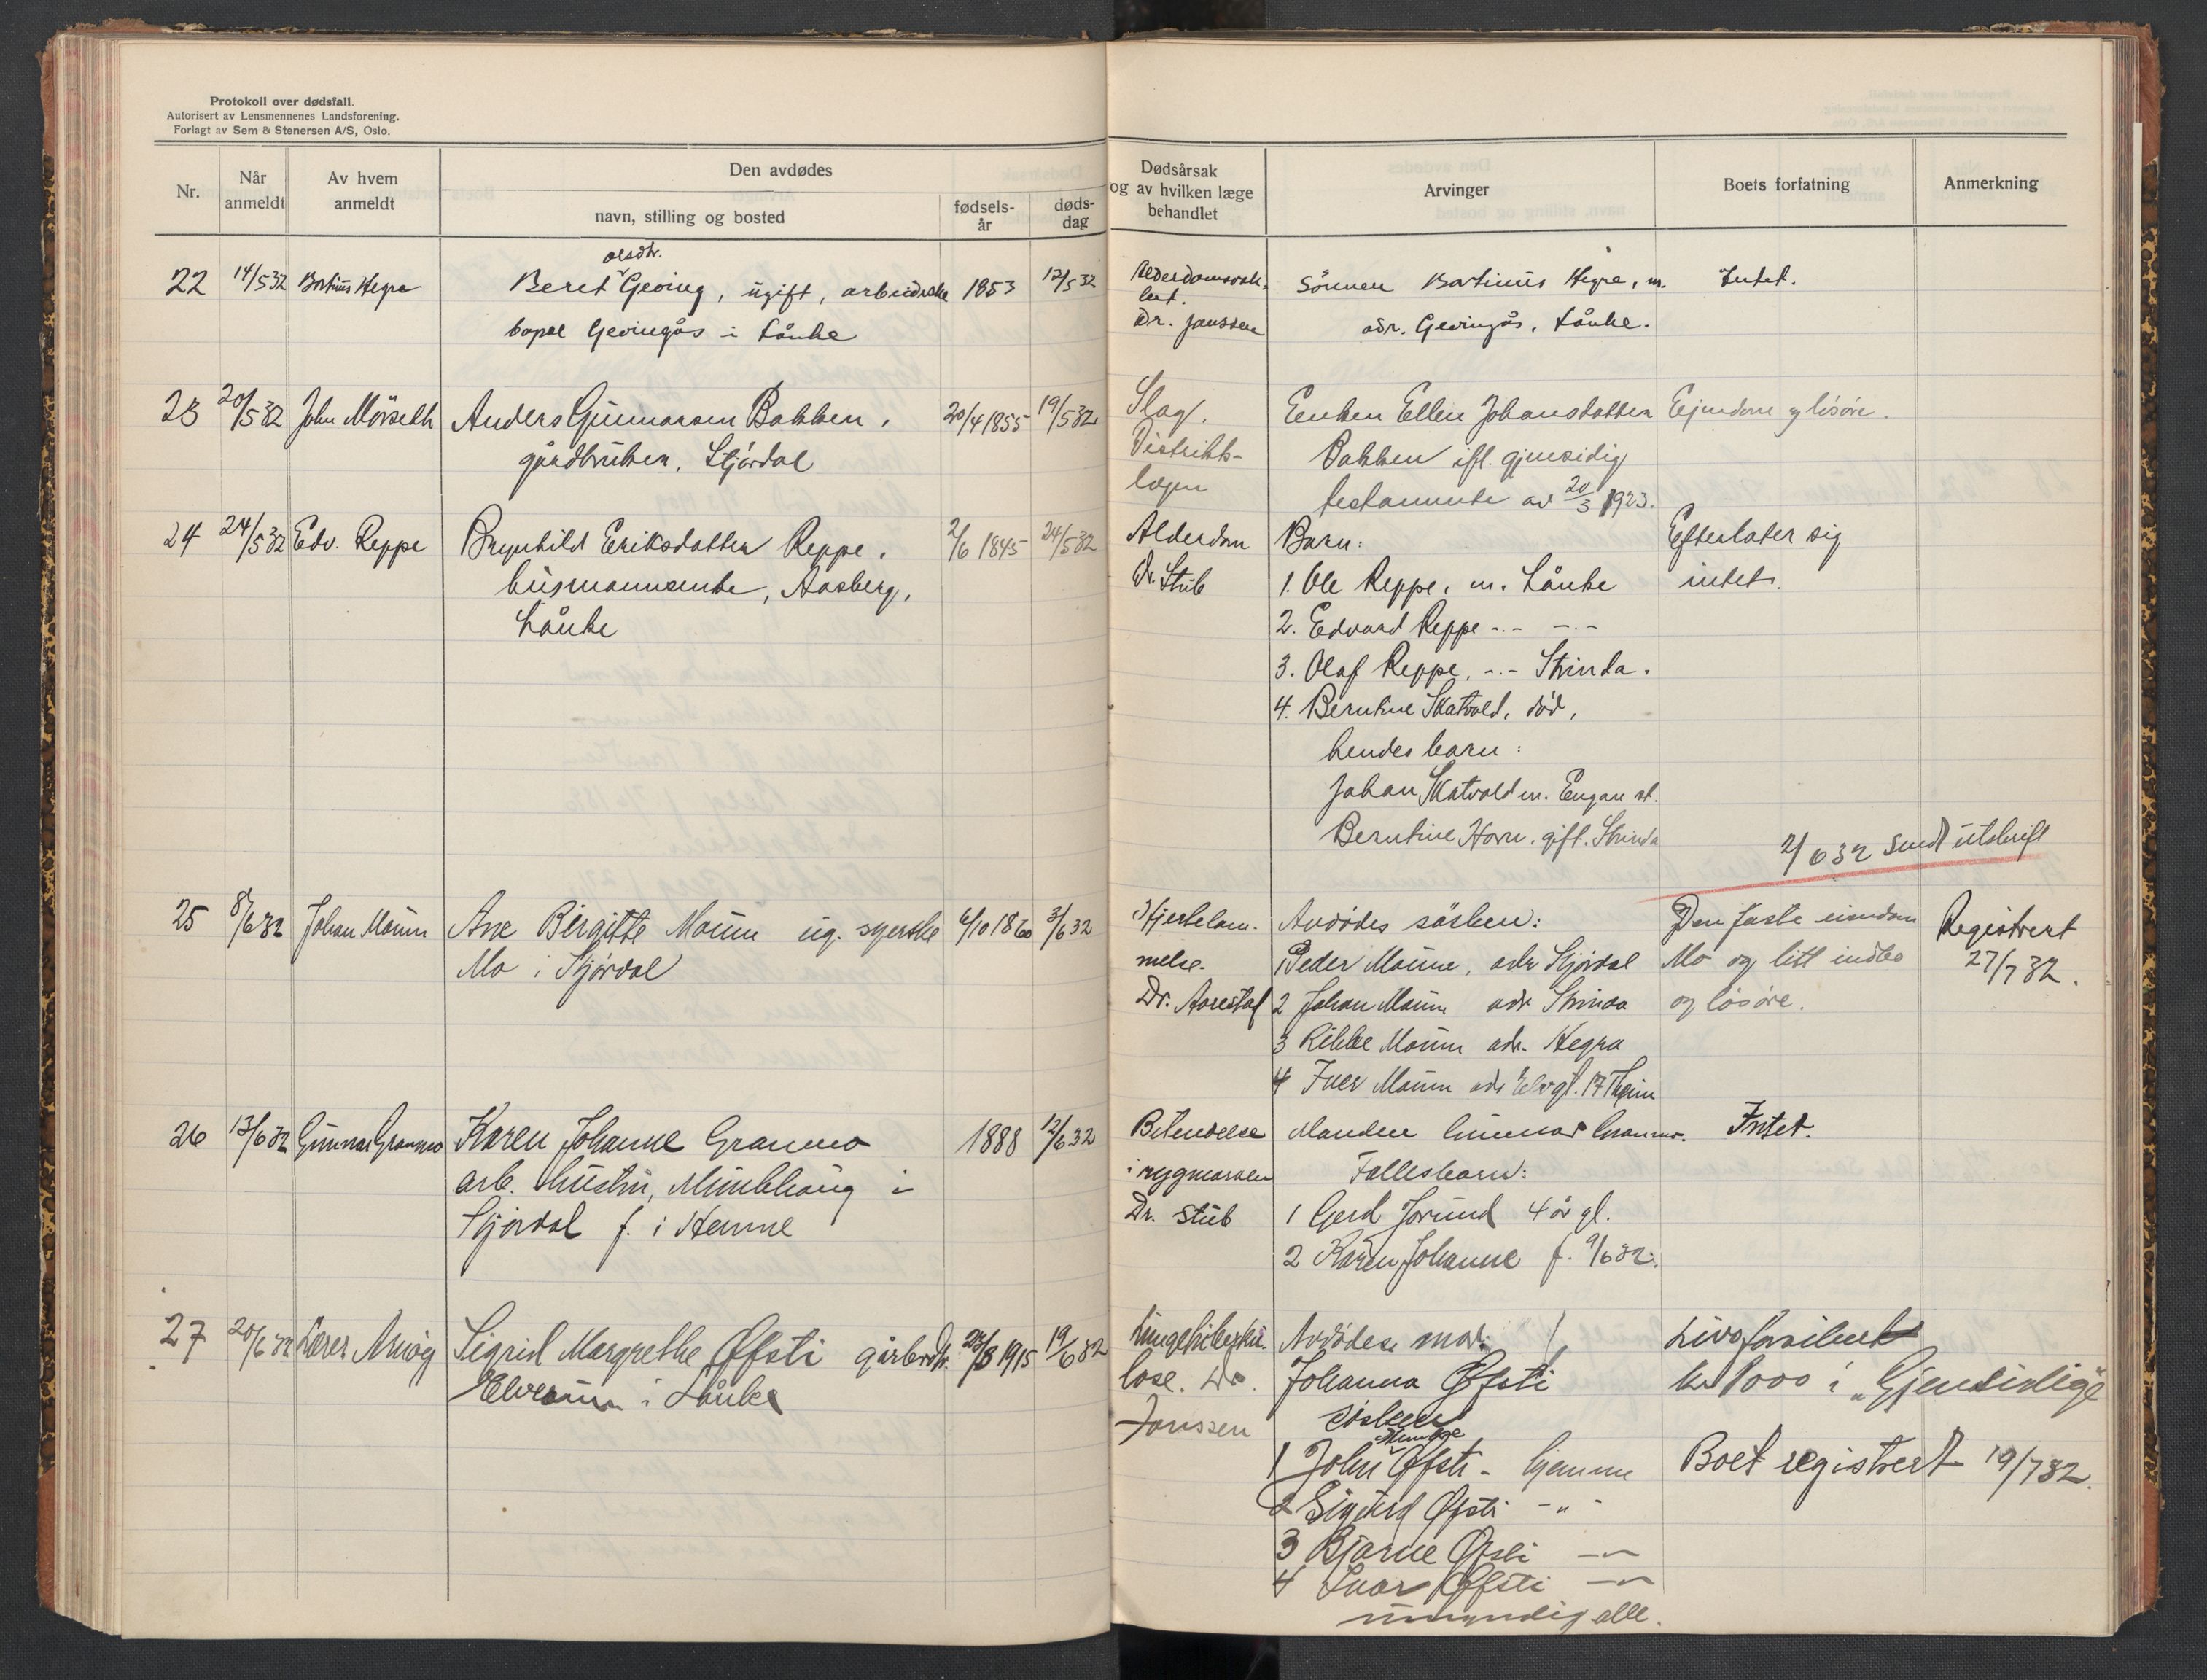 Protokoll over dødsfall.
Autorisert av Lensmennenes Landsforening.
Forlagt av Sem & Stenersen A/S, Oslo.
Nr.
Når anmeldt
Av hvem anmeldt
Den avdødes
navn, stilling og bosted
fødsels-
år
døds-
dag
Dødsårsak
og av hvilken læge
behandlet
Arvinger
Boets forfatning
Anmerkning
olsdtr.
22 14/5 32 Bartinus Hegre Beret Geving, ugift, 1853 12/5 32
bopæl Gevingås i Lånke
Dr. Janssen
Sønnen Bartinus Hegre, m. Intet.
adr. Gevingås, Lånke.
23 20/5 32 John Mörseth Anders Gunnarsen Bakken, 20/4 1855 19/5 32
gårdbruker, Stjørdal
Slag.
Distrikts-
lægen
Enken Ellen Johansdatter Eiendom og lösöre.
Bakken ifl. gjensidig
testamente av 20/3 1923.
24 24/5 32 Edv. Reppe Brynhild Eriksdatter Reppe, 2/6 1845 24/5 32
husmannsenke, Aasberg,
Lånke
Alderdom
Dr. Stub
Barn:
1. Ole Reppe, m. Lånke
2. Edvard Reppe -.- -.-
3. Olaf Reppe, -.- Strinda.
4. Berntine Skatvold, død,
hendes barn:
Johan Skatvold m. Engan st.
Berntine Horn, gift. Strinda
Efterlater sig
intet.
2/6 32 sendt utskrift
25 8/6 32 Johan Moum Ane Birgitte Moum ug. syerske 6/10 1860 3/6 32
Mo i Stjørdal
Hjertelam-
melse.
Dr. Aarestad
Avdødes søsken:
1 Peder Moum, adr Stjørdal
2 Johan Moum adr Strinda
3 Rikke Moum adr. Hegra
4 Iver Moum adr Elvegt. 17 Thjem
Den faste eiendom
Mo og litt indbo
og lösöre.
Registrert
27/7 32.
26 13/6 32 Gunnar Granmo Karen Johanne Granmo 1888 12/6 32
arb. hustru, Munkhaug i
Stjørdal f. i Hemne
Betendelse
i rygmarven
Dr. Stub
Manden Gunnar Granmo. Intet.
Fellesbarn:
1 Gerd Jorund 4 år gl.
2 Karen Johanne f. 9/6 32.
27 20/6 32 Lærer Arnvig Sigrid Margrethe Øfsti gårbrdtr. 23/8 1915 19/6 32
Elverum i Lånke
Lungetuberku-
lose. Dr.
Janssen
Avdødes mor:
Johanna Øfsti
søsken
1 John Øfsti - hjemme
2 Sigurd Øfsti -"-
3 Bjarne Øfsti -"-
4 Ivar Øfsti -"-
umyndig alle.
Livsforsikret
kr 1000 i "Gjensidige
Boet registrert 19/7 32.